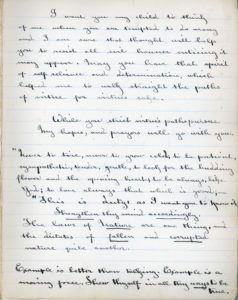 I want you my child to think
of me when you are tempted to do wrong
and I am sure that thought will help
you to resist all evil however enticing it
may appear. Many you have that spirit
of self reliance and determination, which
helped me to walk straight the paths
of virtue for virtues sake.
While you strict virtues paths pursue
My hopes and prayers will go with you.
"Never to tire, never to grow cold; to be patient,
sympathetic, tender, gently, to look for the budding
flower and the opening heart; to always hope like
God; to love always that which is good;
"This is duty as I want you to know it
Strengthen thy mind accordingly.
The laws of nature are one thing; and
the dictates of fallen and corrupted
nature quite another.
Example is better than telling. Example is a
moving force. Show thyself in all thy ways to be
true.